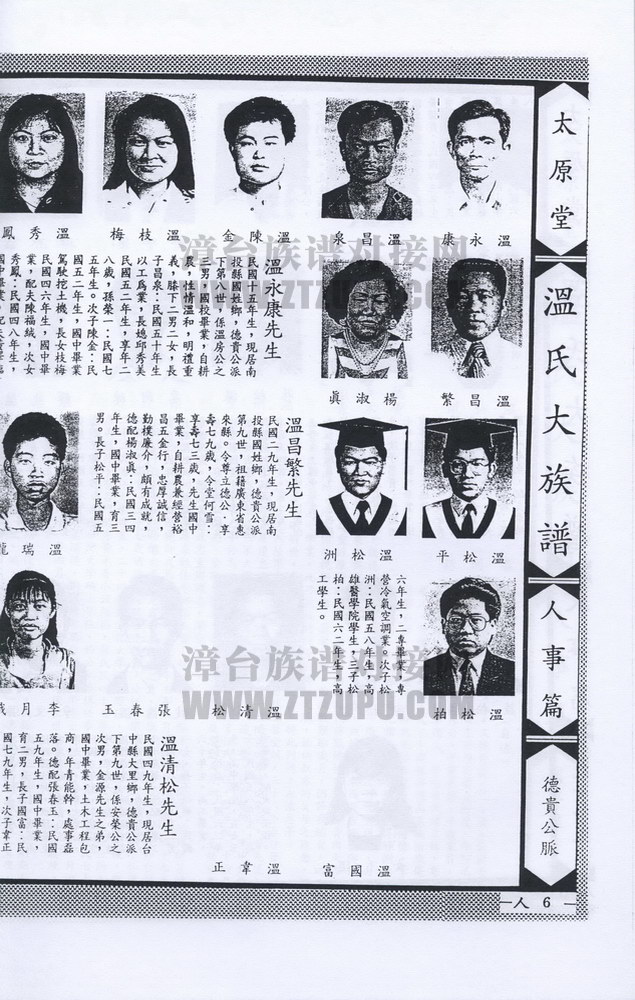 太原堂
溫氏大族譜
人事篇
德貴公脈
人 6
溫永康
溫昌泉
溫陳金
溫枝梅
溫秀鳳
溫永康先生
民國十五年生，現居南
投縣國姓鄉，德貴公派
下第八世，係溫房公之
三男，國校畢業，自耕
農，性情溫和，明禮重
義，膝下二男二女，長
子昌泉：民國五十年生
，以工爲業，長媳邱秀美
民國五二年生，享年二
八歲，孫榮一：民國七
五年生。次子陳金：民
國五二年生，國中畢業
駕駛挖土機，長女枝梅
民國四六年生，國中畢
業，配夫陳福越，次女
秀鳳：民國四八年生，
溫昌繁
楊淑眞
溫昌繁先生
民國二九年生，現居南
投縣國姓鄉，德貴公派
第九世，祖籍廣東省惠
來縣。令尊立德公．享
壽七九歲，令堂何雪：
享壽七三歲，先生國中
畢業，自耕農兼經營裕
昌五金行，忠厚誠信，
勤樸廉介，頗有成就，
德配楊淑眞：民國三四
年生，國中畢業，育三
男。長子松平：民國五
溫松平
溫松洲
溫瑞龍
六年生，二專畢業，專
營冷氣空調業。次子松
洲：民國五八年生，高
雄醫學院學生，三子松
柏：民國六二年生，高
工學生。
溫松柏
溫清松
張春玉
李月娥
溫清松先生
民國四九年生，現居台
中縣大里鄉，德貴公派
下第九世，係安榮公之
次男，金源先生之弟，
國中畢業，土木工程包
商，年青能幹，處事磊
落。德配張春玉：民國
五九年生，國中畢業，
育二男，長子國富：民
國七九年生，次子韋正
溫國富
溫韋正
漳台族谱对接网
WWW.ZTZUPU.COM